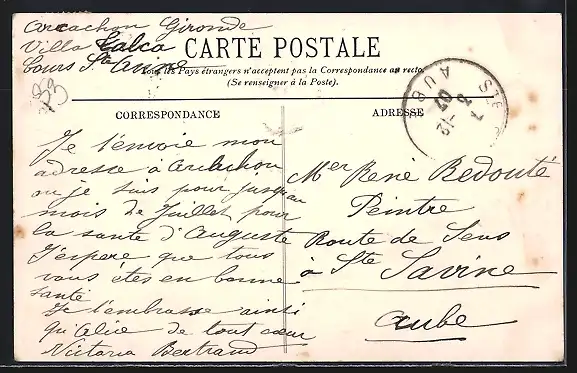 Arcachon Gironde
Villa Talca
Cours Ste Anne
CARTE POSTALE
Tous les Pays étrangers n'acceptent pas la Correspondance au recto.
(Se renseigner à la Poste).
CORRESPONDANCE
Je t'envoie mon
adresse à Arcachon
ou je suis pour jusqu'au
mois de Juillet pour
la santé d'Auguste
J'espere que tous
vous êtes en bonne
santé
Je t'embrasse ainsi
qu'Alice de tout cœur
Victoria Bertrand
ADRESSE
Mer René Redouté
Peintre
Route de Sens
à Ste Savine
Aube
STE
AUBE
7 -12
07